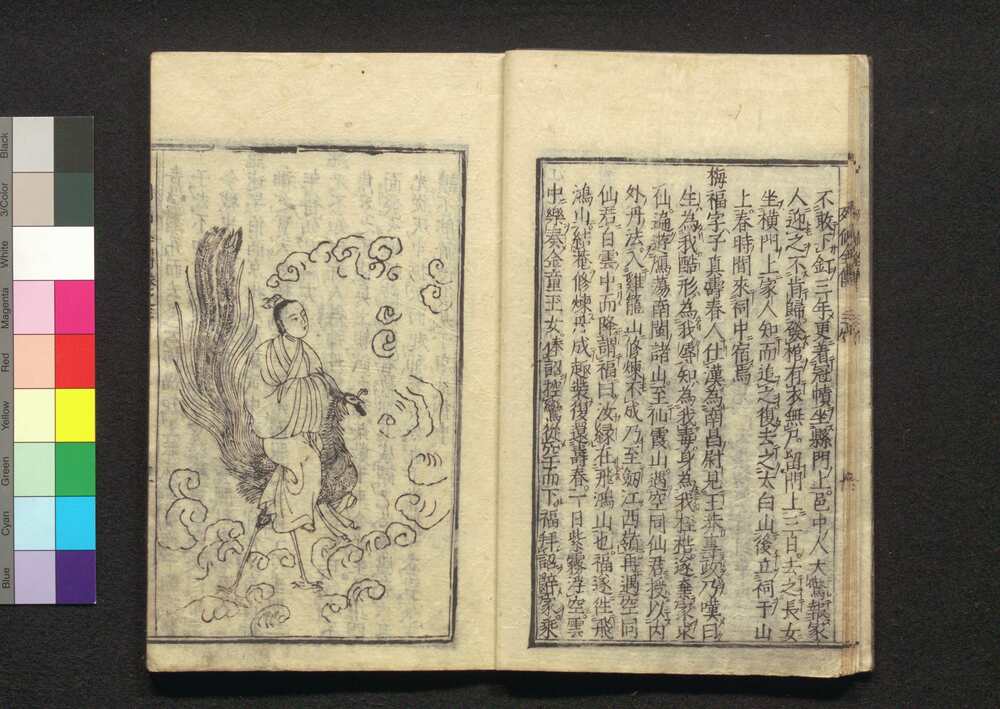 不敢下釭三年更着冠幘坐縣門上邑中人大驚報家
人迎之不肯歸發棺有衣無尸留門上三百去之長女
坐橫門上家人知而追之復去之太白山後立祠于山
上春時間來祠中宿焉
梅福字子真壽春人仕漢為南昌尉見王莽專政乃嘆曰
生為我酷形為我辱知為我毒身為我桎梏遂棄家求
仙遍遊鴈蕩南閩諸山至仙霞山遇空同仙君授以内
外丹法入雞籠山修煉不成乃至劒江西嶺再遇空同
仙君自雲中而降謂福曰汝緣在飛鴻山也福遂往飛
鴻山結菴修煉丹成趣裝復還壽春一日紫霧浮空雲
中樂奏金童玉女奉詔控鸞從空而下福拜詔辭家乘
Black
3/Color
White
Magenta
Red
Yellow
Green
Cyan
Blue